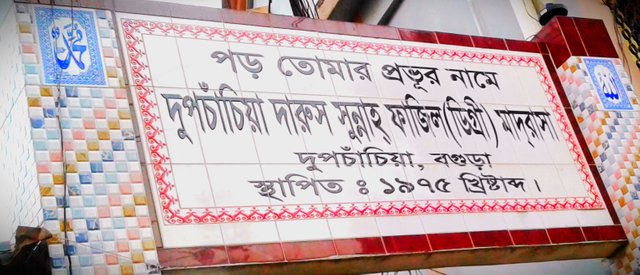 محمد
الله
পড় তোমার প্রভূর নামে
দুপচাঁচিয়া দারুস সুন্নাহ্ ফাজিল(ডিগ্রী) মাদ্রাসা
দুপচাঁচিয়া, বগুড়া
স্থাপিত : ১৯৭৫ খ্রিষ্টাব্দ ।